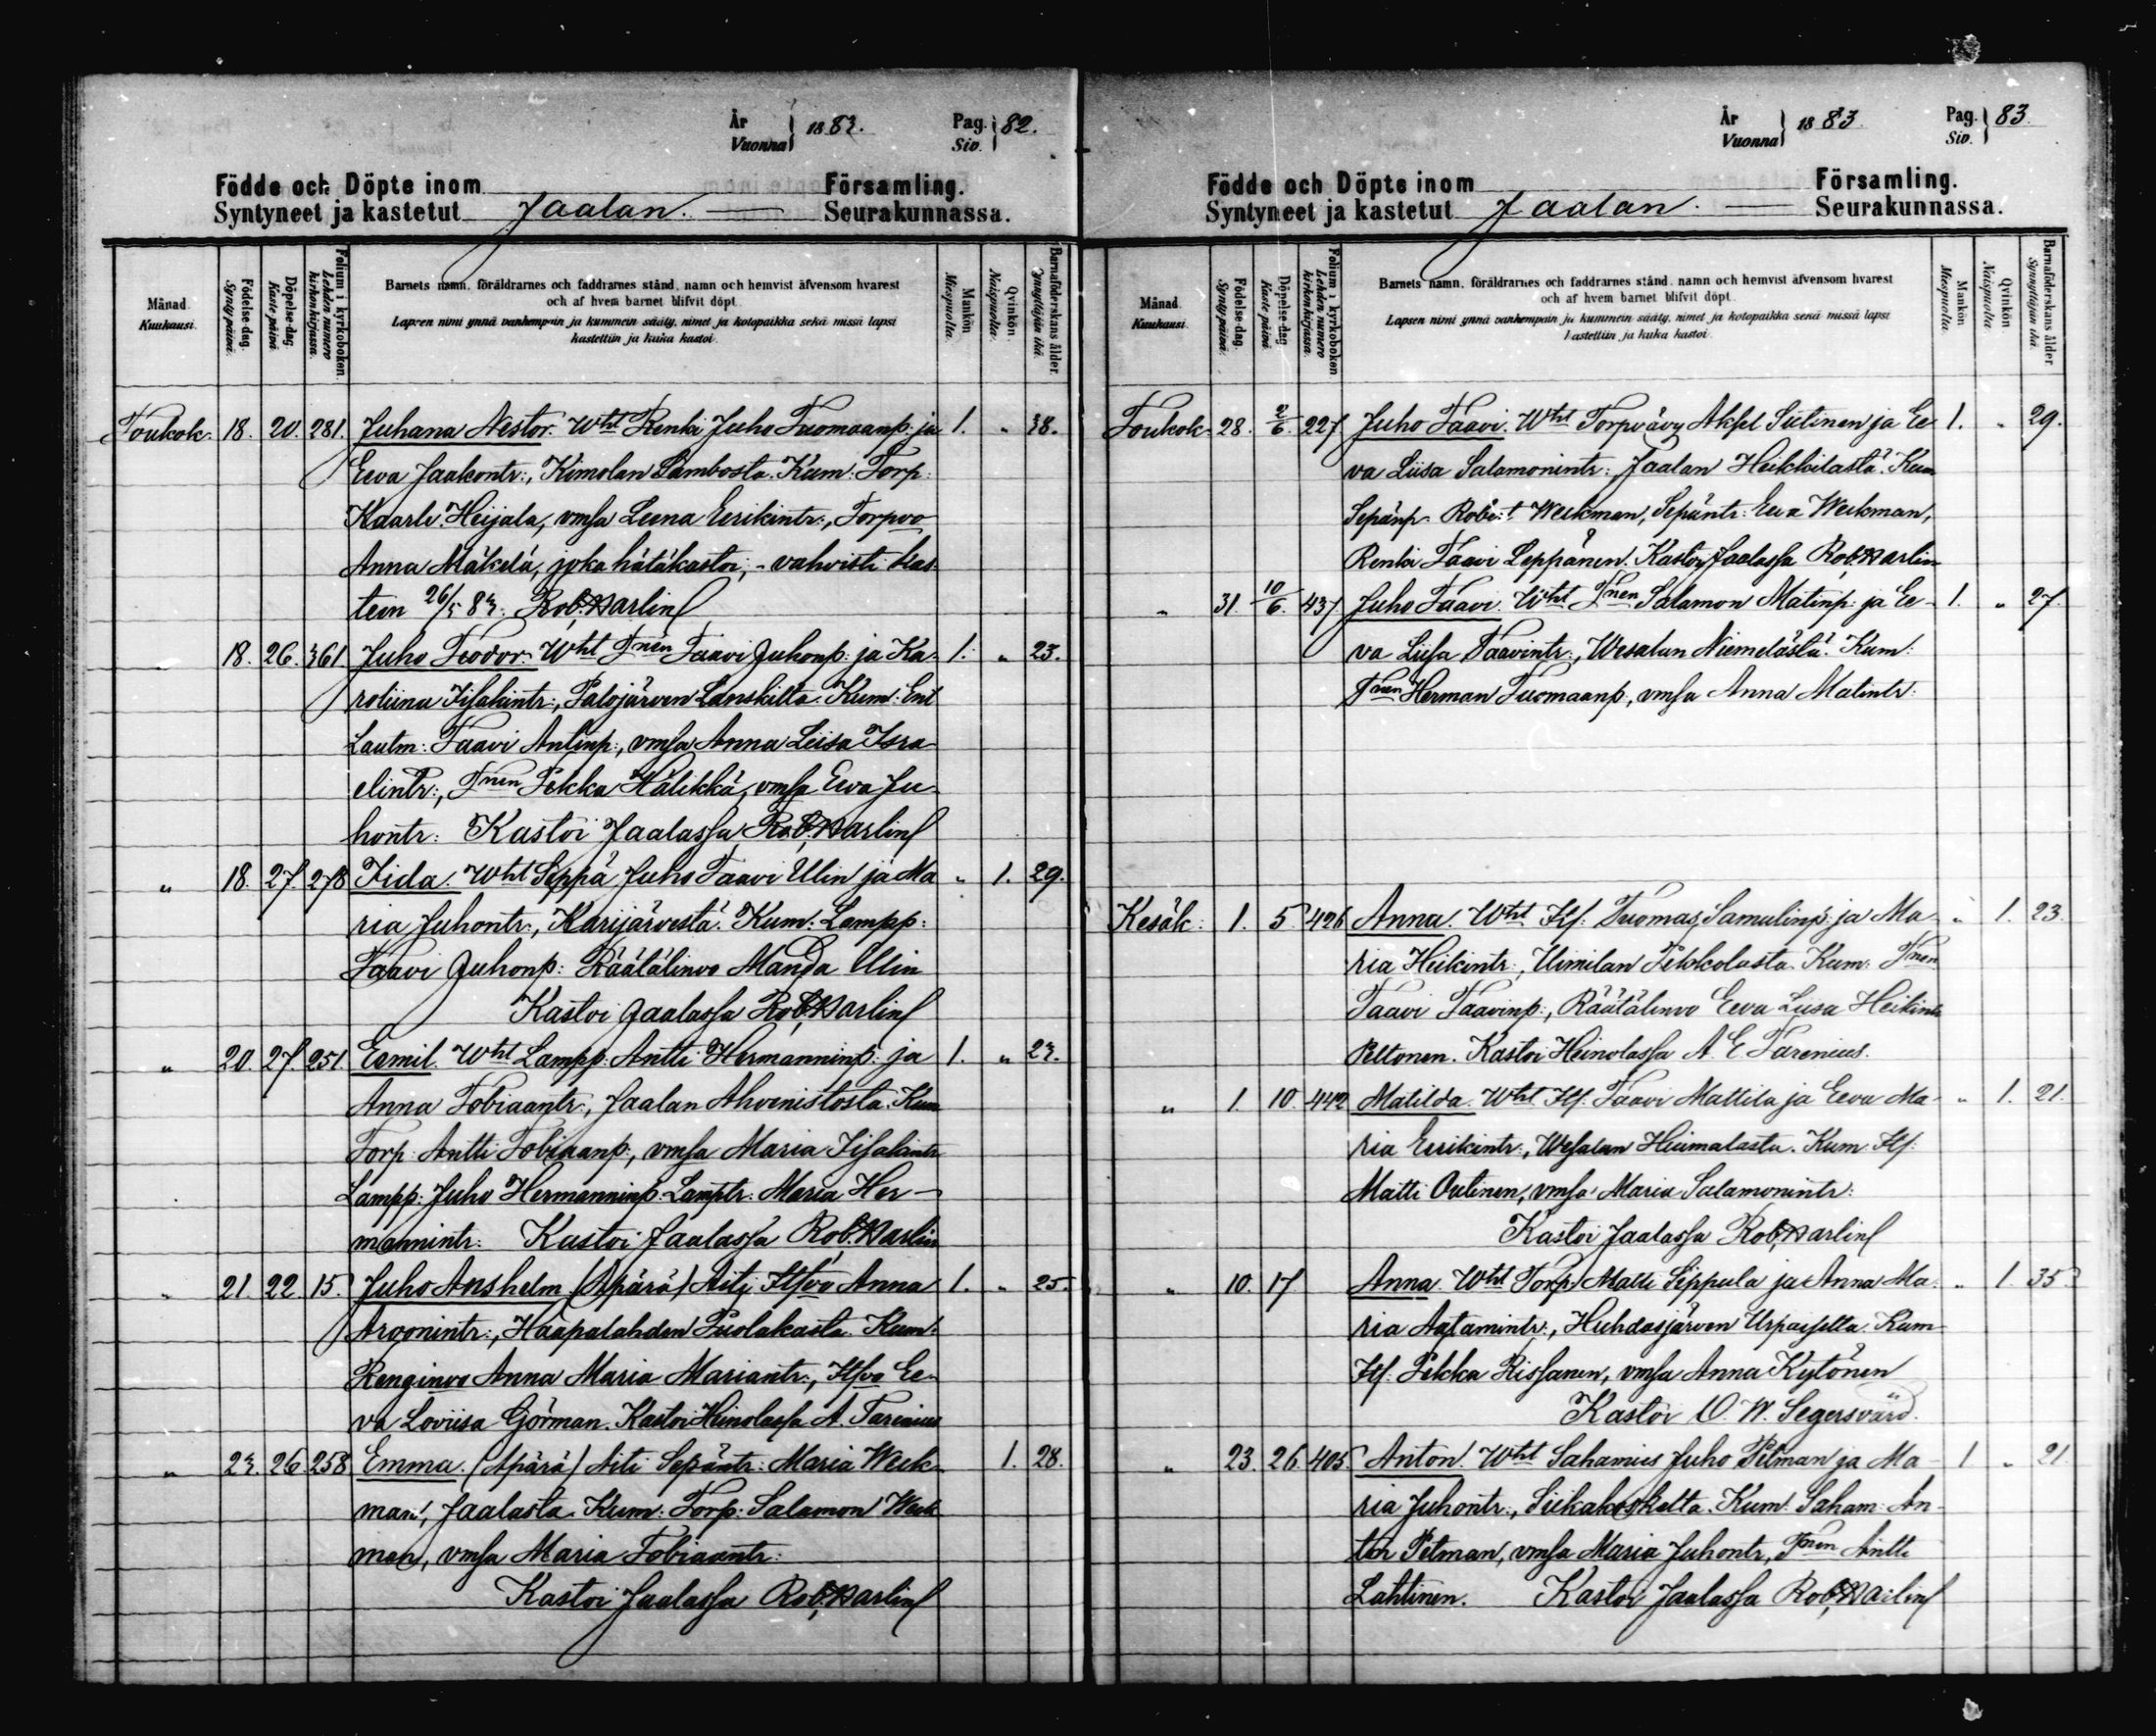 År
Vuonna } 1883.
Pag.
Siv. } 82.
Födde och Döpte inom Församling.
Syntyneet ja kastetut Jaalan. — Seurakunnassa.
Månad. Kuukausi.
Födelse-dag. Synty päivä.
Döpelse-dag. Kaste päivä.
Folium i kyrkoboken. Lehden numero kirkon kirjassa.
Barnets namn, föräldrarnes och faddrarnes stånd, namn och hemvist äfvensom hvarest
och af hvem barnet blifvit döpt.
Lapsen nimi ynnä vanhempain ja kummein sääty, nimet ja kotopaikka sekä missä lapsi
kastettiin ja kuka kastoi.
Mankön. Miespuolta.
Qvinkön. Naispuolta.
Barnaföderskans ålder. Synnyttäjän ikä.
Toukok. 18. 20. 281. Juhana Nestor. Wht Renki Juho Tuomaanp: ja 1. „ 38.
Eeva Jaakontr:, Kimolan Lambosta. Kum: Torp:
Kaarle Heijala, vmsa Leena Eerikintr:, Torpvo
Anna Mäkelä, joka hätäkastoi, - vahvisti kas
teen 26/5 83. Rob. Harlin
„ 18. 26. 361 Juho Teodor. Wht Tnen Taavi Juhonp: ja Ka- 1. „ 23.
roliina Iisakintr:, Palojärven Lanskilta. Kum: Ent
Lautm: Taavi Antinp:, vmsa Anna Leisa Isra
elintr:, Tnen Pekka Hälikkä, vmsa Eeva Ju-
hontr: Kastoi Jaalassa Rob. Harlin
„ 18. 27. 278 Iida. Wht Seppä Juho Taavi Ulin ja Ma „ 1. 29.
ria Juhontr:, Karijärvestä. Kum: Lampp:
Taavi Juhonp: Räätälinvo Manda Ulin
Kastoi Jaalassa Rob. Harlin
„ 20. 27. 251. Eemil. Wht Lampp: Antti Hermanninp: ja 1. „ 23.
Anna Tobiaantr:, Jaalan Ahvenistosta. Kum
Torp: Antti Tobiaanp:, vmsa Maria Iisakintr
Lampp: Juho Hermanninp: Lamptr: Maria Her-
mannintr: Kastoi Jaalassa Rob. Harlin
„ 21. 22. 15. Juho Anshelm (Äpärä) Äiti Itsvo Anna 1. „ 25.
Aroonintr:, Haapalahden Puolakasta. Kum:
Renginvo Anna Maria Mariantr:, Itsvo Ee-
va Loviisa Görman. Kastoi Heinolassa A. Tarenius
„ 23. 26. 258 Emma. (Äpärä) Äiti Sepäntr: Maria Weck- 1. 28.
man, Jaalasta. Kum: Torp: Salamon Weck
man, vmsa Maria Tobiaantr:
Kastoi Jaalassa Rob. Harlin
År
Vuonna } 1883.
Pag.
Siv. } 83.
Födde och Döpte inom Församling.
Syntyneet ja kastetut Jaalan. — Seurakunnassa.
Månad. Kuukausi.
Födelse-dag. Synty päivä.
Döpelse-dag. Kaste päivä.
Folium i kyrkoboken. Lehden numero kirkon kirjassa.
Barnets namn, föräldrarnes och faddrarnes stånd, namn och hemvist äfvensom hvarest
och af hvem barnet blifvit döpt.
Lapsen nimi ynnä vanhempain ja kummein sääty, nimet ja kotopaikka sekä missä lapsi
kastettiin ja kuka kastoi.
Mankön. Miespuolta.
Qvinkön. Naispuolta.
Barnaföderskans ålder. Synnyttäjän ikä.
Toukok. 28. 2/6. 227 Juho Taavi. Wht Torpvävy Aksel Sutinen ja Ee 1. „ 29.
va Liisa Salamonintr: Jaalan Heikkilästä. Kum
Sepänp: Robert Weckman, Sepäntr: Eeva Weckman,
Renki Taavi Leppänen. Kastoi Jaalassa Rob. Harlin
„ 31. 10/6. 437 Juho Taavi. Wht Tnen Salamon Matinp: ja Ee- 1. „ 27.
va Liisa Taavintr:, Wesalan Niemelästä. Kum:
Tnen Herman Tuomaanp:, vmsa Anna Matintr:
Kesäk: 1. 5. 426 Anna. Wht Its: Tuomas Samulinp: ja Ma- „ 1. 23.
ria Heikintr:, Uimilan Pekkolasta. Kum: Tnen
Taavi Taavinp:, Räätälinvo Eeva Liisa Heikintr
Peltonen. Kastoi Heinolassa A. E. Tarenius.
„ 1. 10. 442 Matilda. Wht Its: Taavi Mattila ja Eeva Ma- „ 1. 21.
ria Eerikintr:, Wesalan Heimalasta. Kum Its:
Matti Outinen, vmsa Maria Salamonintr:
Kastoi Jaalassa Rob. Harlin
„ 10. 17 Anna. Wht Torp: Matti Sippula ja Anna Ma- „ 1. 35.
ria Aatamintr:, Huhdasjärven Urpaiselta. Kum
Its: Pekka Rissanen, vmsa Anna Kytönen
Kastoi O. W. Segersvärd.
„ 23. 26. 405. Anton. Wht Sahamies Juho Pitman ja Ma- 1 „ 21
ria Juhontr:, Siikakoskelta. Kum: Saham: An-
ton Pitman, vmsa Maria Juhontr, Tnen Antti
Lahtinen. Kastoi Jaalassa Rob. Harlin